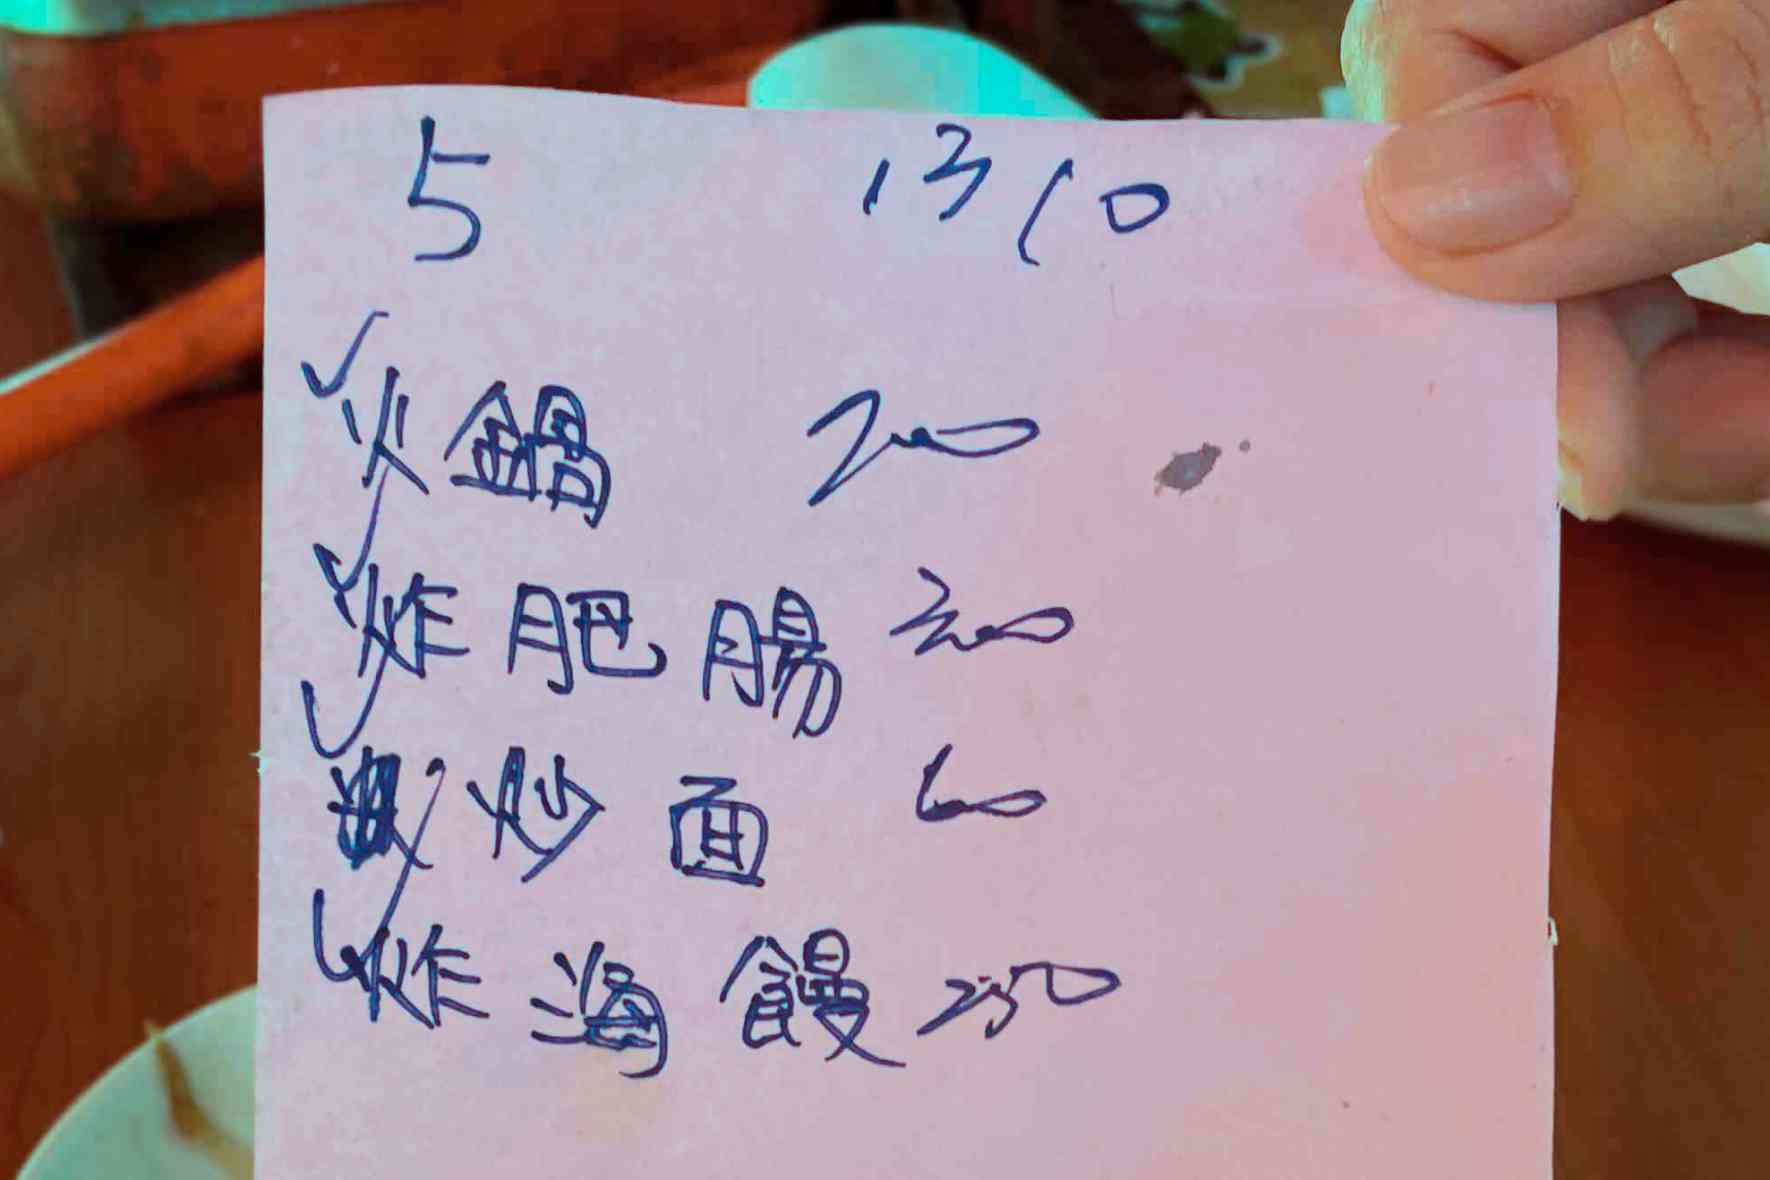 5 1310
火鍋 700
炸肥腸 300
炒面 60
炸海饅 250